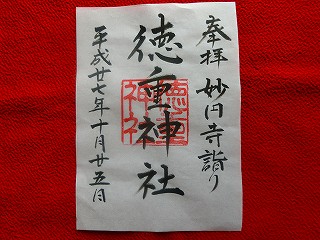 奉拝 妙円寺詣り
徳重神社
平成廿七年十月廿五日
徳重神社